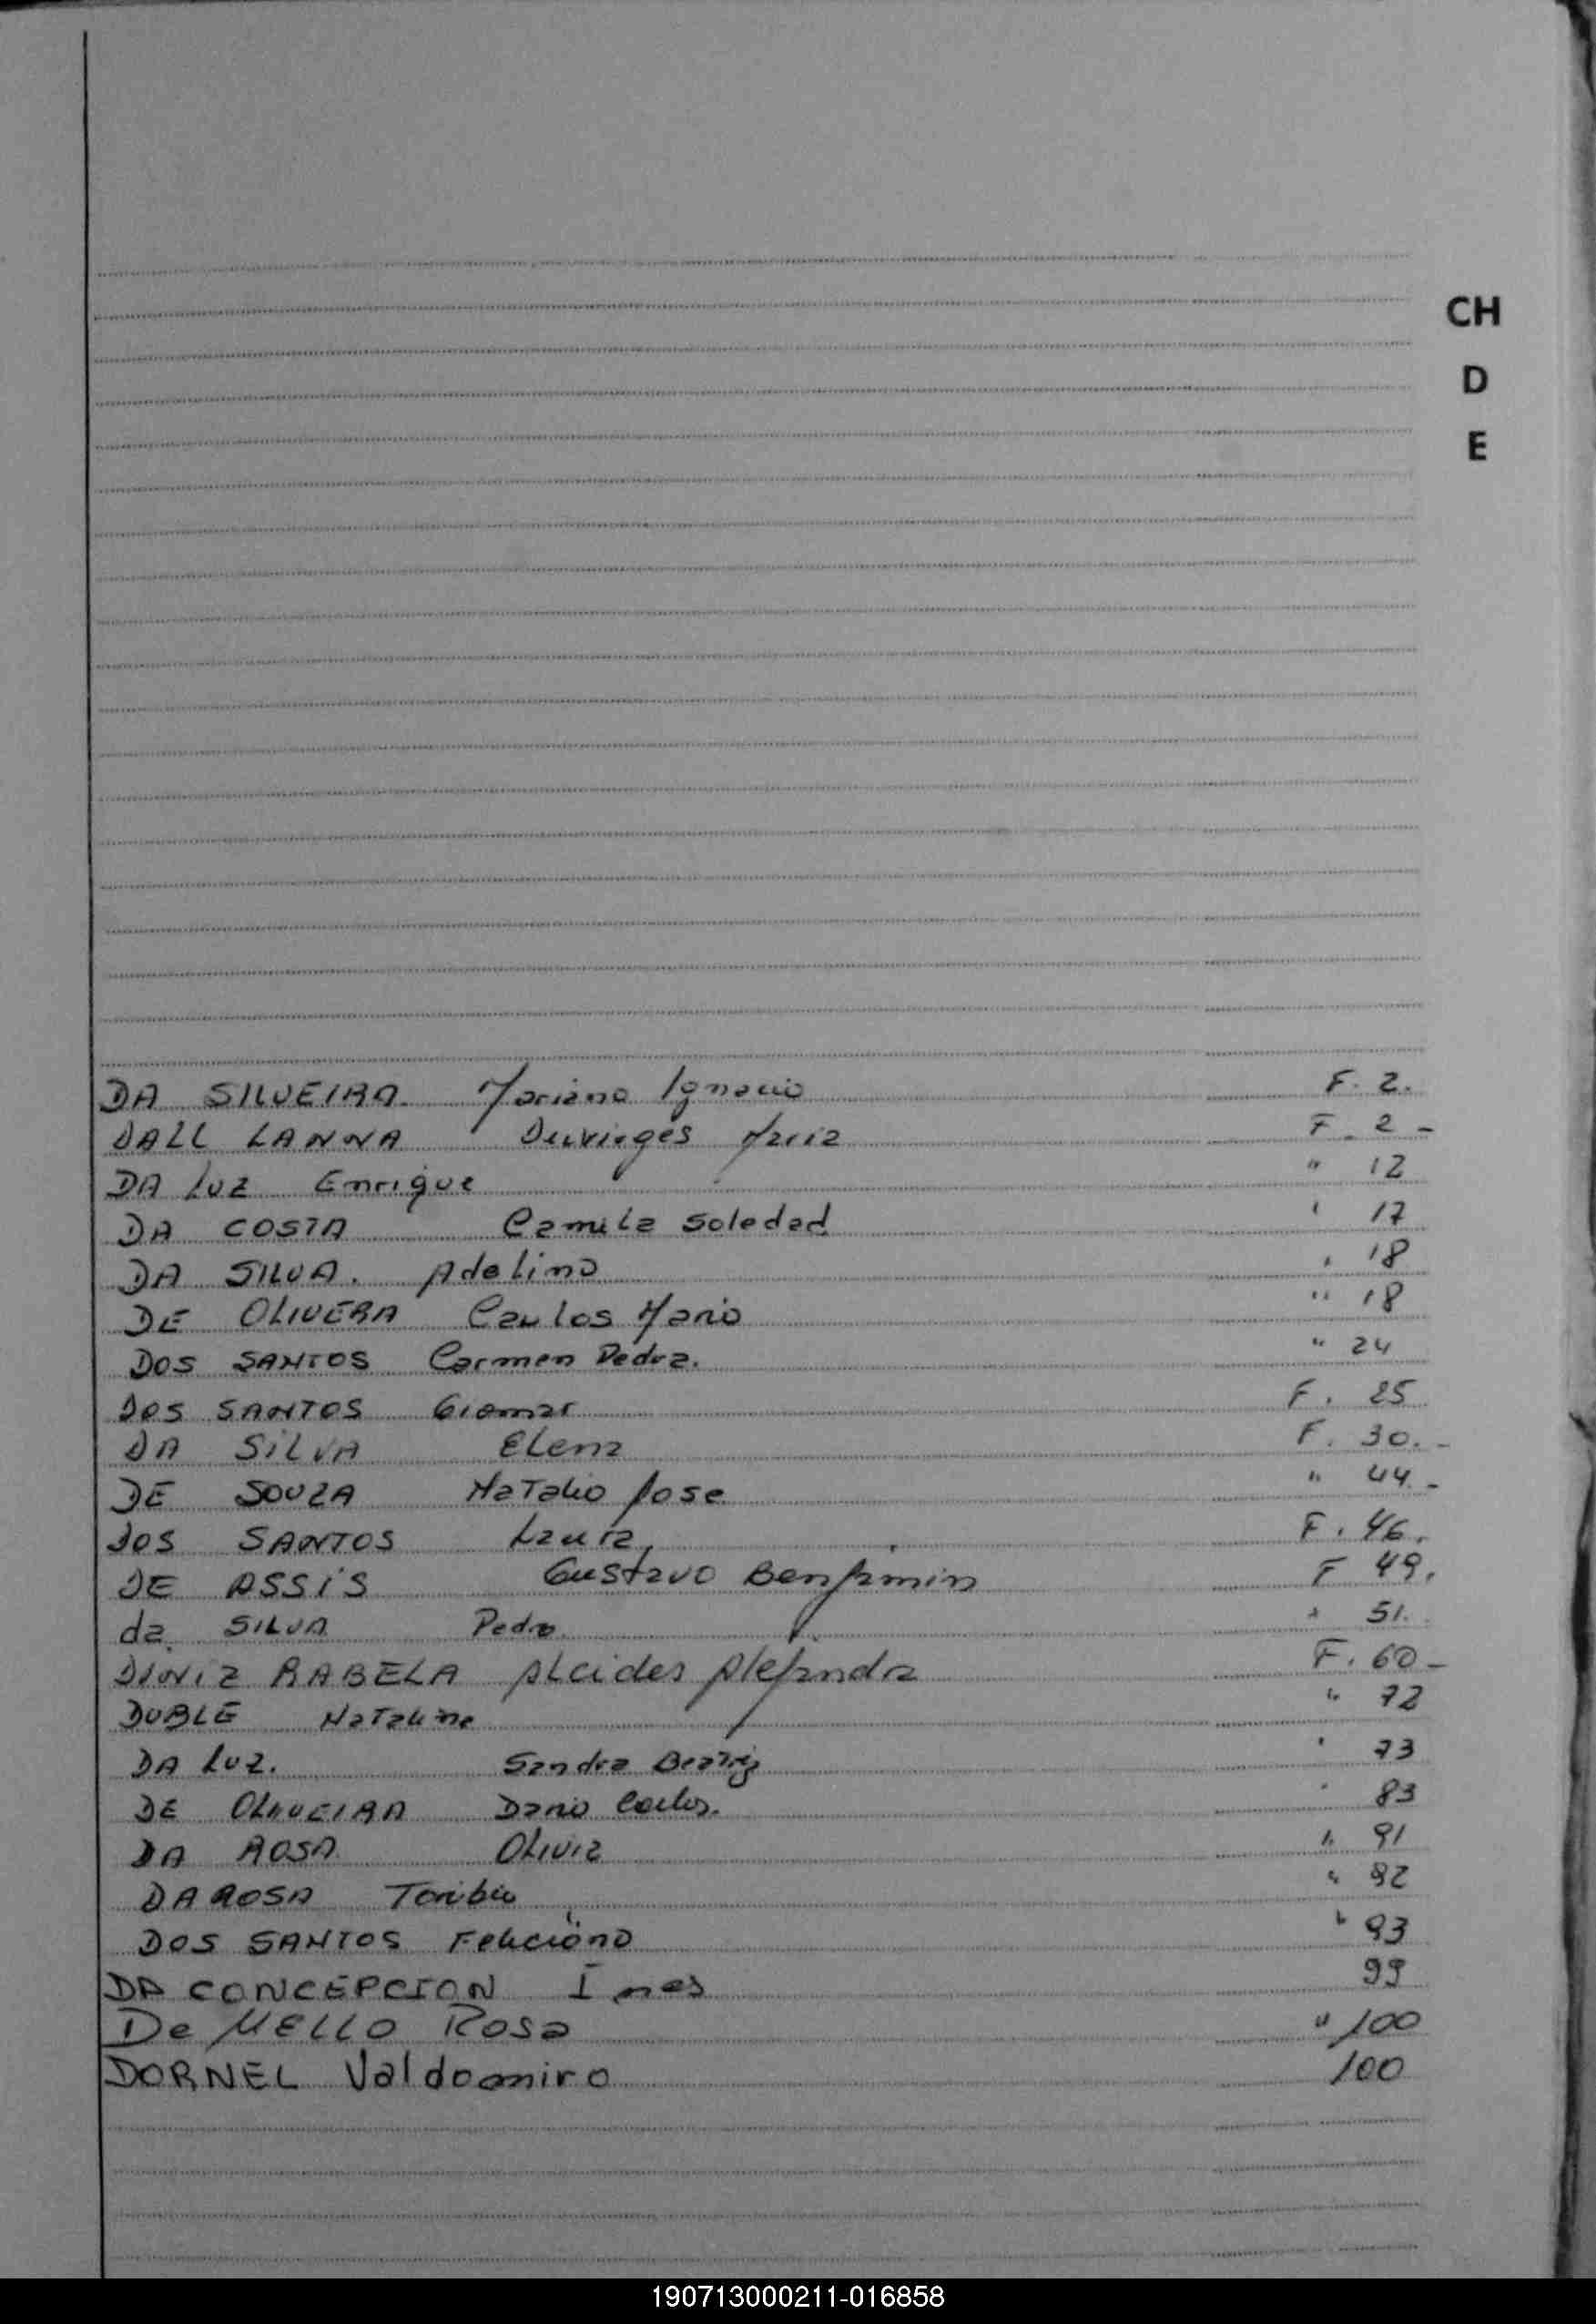 CH
D
E
DA SILVEIRA. Mariano Ignacio F. 2.
DALL LANNA Maria F. 2 -
DA LUZ Enrique " 12
DA COSTA Camila Soledad " 17
DA SILVA. Adelino " 18
DE OLIVERA Carlos Mario " 18
DOS SANTOS Carmen Pedra. " 24
DOS SANTOS Giomar F. 25
DA SILVA Elena F. 30.-
DE SOUZA Natalio Jose " 44.-
dos SANTOS Laura F. 46.
DE ASSIS Gustavo Benjamin F 49.
da SILVA Pedro " 51.
DINIZ RABELA Alcides Alejandra F. 60-
DUBLE Nataline " 72
DA LUZ. Sandra Beatriz " 73
DE OLIVEIRA Dario Carlos. " 83
DA ROSA Olivia " 91
DA ROSA Toribio " 92
DOS SANTOS Feliciano " 93
DA CONCEPCION Ines 99
De MELLO Rosa " 100
DORNEL Valdomiro 100
190713000211-016858